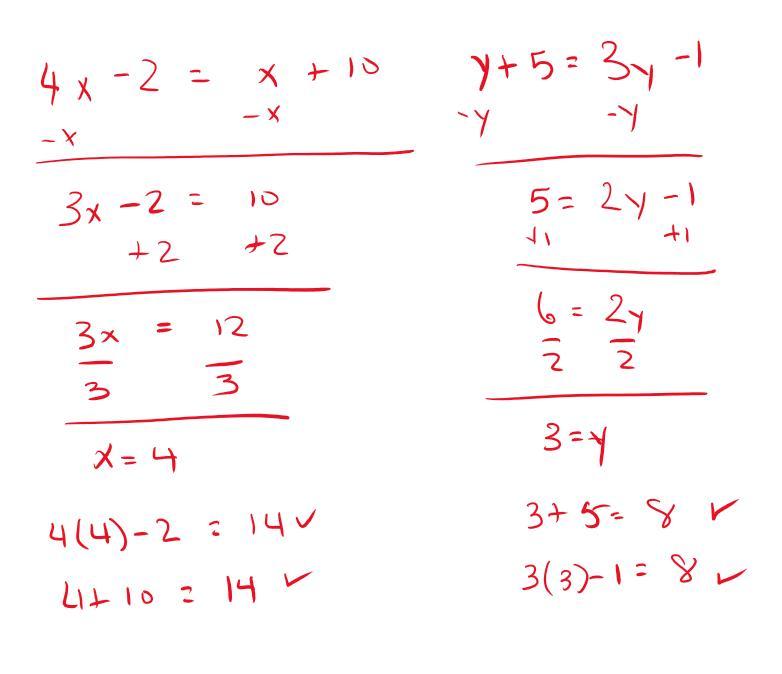 4x - 2 = x + 10
-x -x
3x - 2 = 10
+2 +2
3x = 12
3 3
x = 4
4(4) - 2 = 14 ✓
4 + 10 = 14 ✓
y + 5 = 3y - 1
-y -y
5 = 2y - 1
+1 +1
6 = 2y
2 2
3 = y
3 + 5 = 8 ✓
3(3) - 1 = 8 ✓